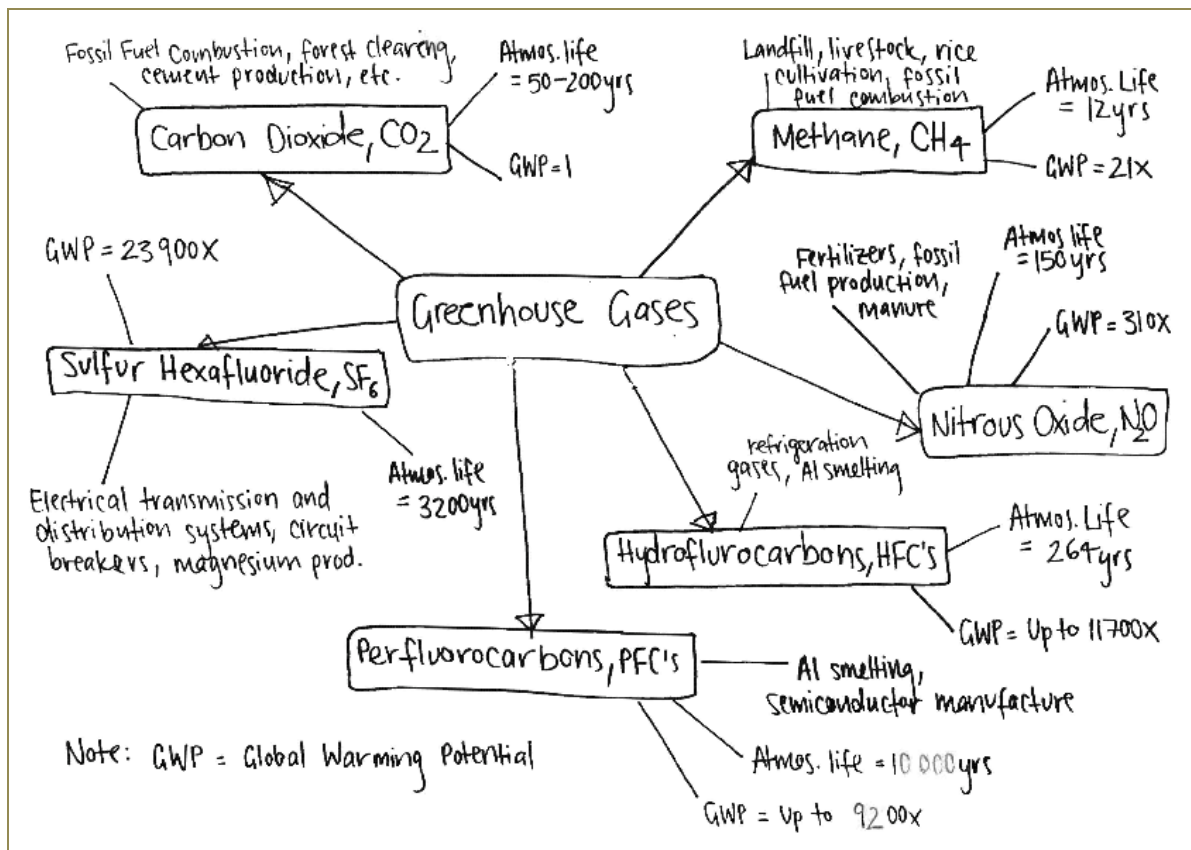 Fossil Fuel Combustion, forest clearing,
cement production, etc.
Atmos. life
= 50-200yrs
Carbon Dioxide, CO₂
GWP=1
Landfill, livestock, rice
cultivation, fossil
fuel combustion
Atmos. Life
= 12yrs
Methane, CH4
GWP = 21x
GWP = 23900x
Greenhouse Gases
Fertilizers, fossil
fuel production,
manure
Atmos life
= 150yrs
GWP = 310x
Sulfur Hexafluoride, SF₆
Nitrous Oxide, N₂O
Electrical transmission and
distribution systems, circuit
breakers, magnesium prod.
Atmos. life
= 3200yrs
refrigeration
gases, Al smelting
Hydroflurocarbons, HFC's
Atmos. Life
= 264yrs
GWP = Up to 11700x
Perfluorocarbons, PFC's
Al smelting,
semiconductor manufacture
Atmos. life = 10 000yrs
GWP = Up to 9200x
Note: GWP = Global Warming Potential